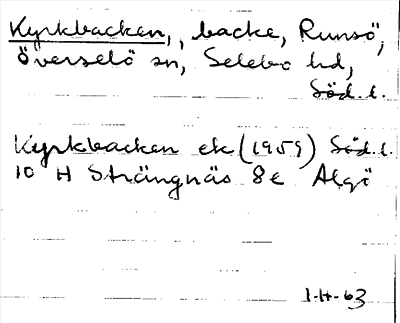 Kyrkbacken, backe, Runsö,
Överselö sn, Selebo hd,
Söd.l.
Kyrkbacken ek (1959) Söd.l.
10 H Strängnäs 8e Algö
1-H-63